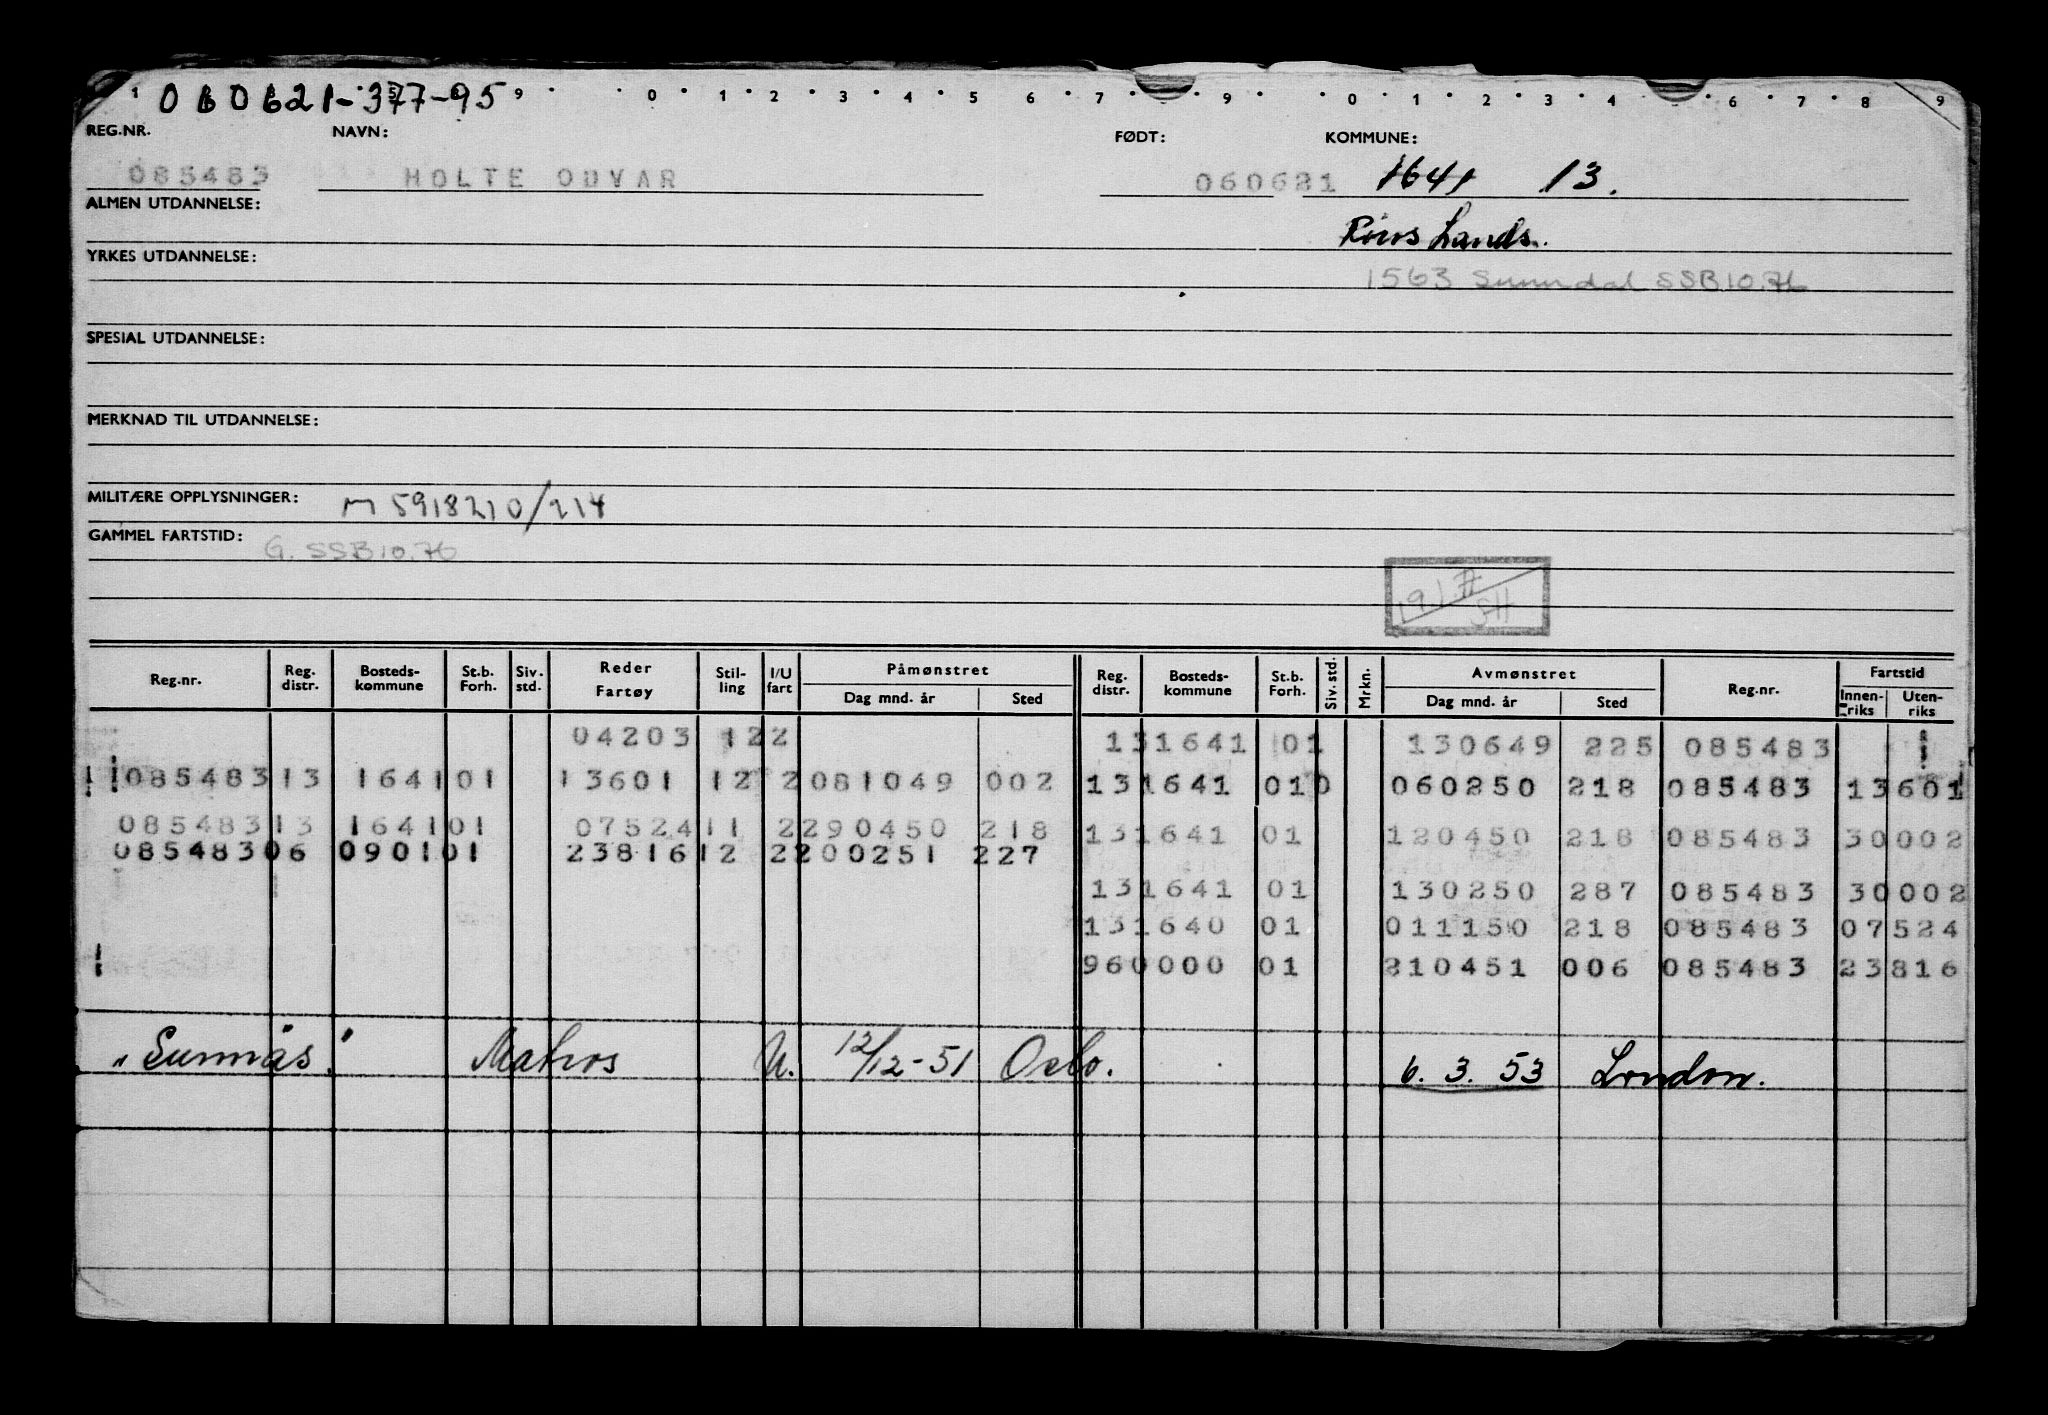 060621-377-95
1 9 0 1 2 3 4 5 6 7 9 0 1 2 3 4 6 7 8 9
REG.NR. NAVN: FØDT: KOMMUNE:
085483 HOLTE ODVAR 060621 1641 13.
ALMEN UTDANNELSE:
Røros Lands.
YRKES UTDANNELSE:
1563 Sunndal SSB10.76
SPESIAL UTDANNELSE:
MERKNAD TIL UTDANNELSE:
MILITÆRE OPPLYSNINGER: M 5918210/214
GAMMEL FARTSTID: G. SSB10.76
Reg.nr. Reg. distr. Bosteds-kommune St.b. Forh. Siv. std. Reder Fartøy Stil-ling I/U fart Påmønstret Dag mnd. år Sted Reg. distr. Bosteds-kommune St.b. Forh. Siv. std. Mrkn. Avmønstret Dag mnd. år Sted Reg.nr. Fartstid Innen-riks Uten-riks
04203 122 131641 01 130649 225 085483
085483 13 164101 13601 12 2 081049 002 131641 010 060250 218 085483 13601
085483 13 164101 07524 11 2 290450 218 131641 01 120450 218 085483 30002
085483 06 090101 23816 12 2 200251 227
131641 01 130250 287 085483 30002
131640 01 011150 218 085483 07524
960000 01 210451 006 085483 23816
"Sunnäs." Matros U. 12/12-51 Oslo. 6. 3. 53 London.